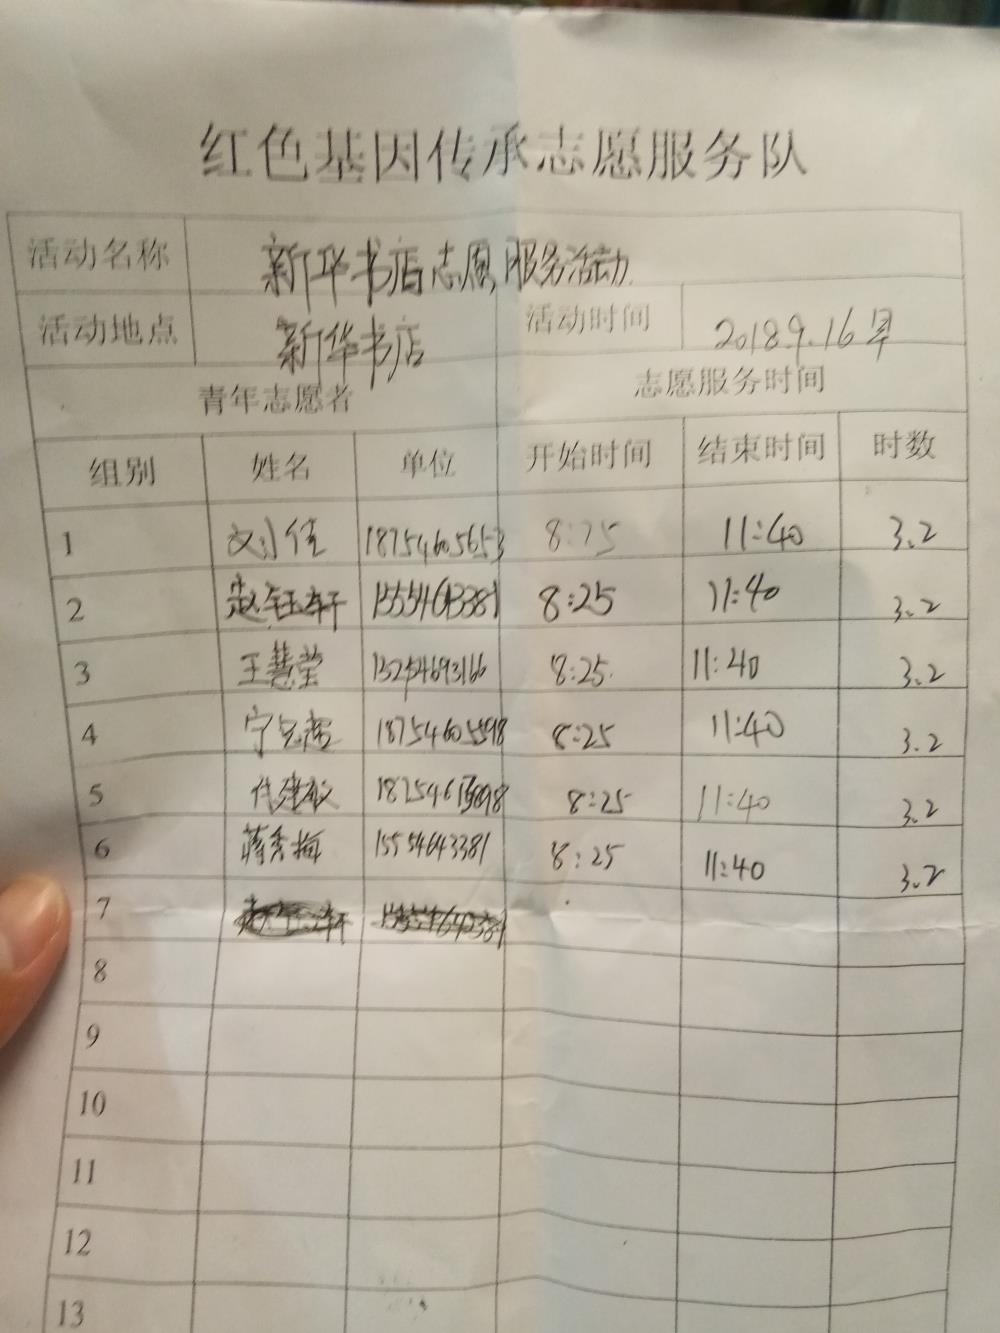 红色基因传承志愿服务队
活动名称 新华书店志愿服务活动
活动地点 新华书店 活动时间 2018.9.16早
青年志愿者 志愿服务时间
组别 姓名 单位 开始时间 结束时间 时数
1 18754605653 11:40 3.2
2 赵钰轩 8:25 11:40 3.2
3 王慧莹 13254693166 8:25 11:40 3.2
4 18754605598 8:25 11:40 3.2
5 8:25 11:40 3.2
6 蒋秀梅 15554643381 8:25 11:40 3.2
7
8
9
10
11
12
13